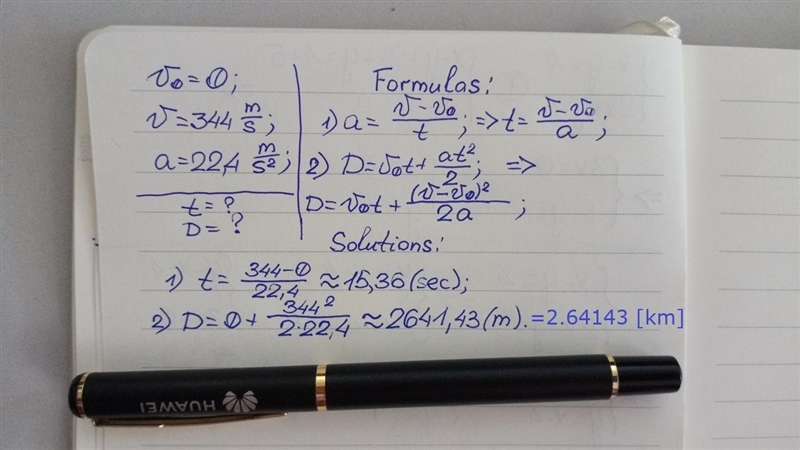 v₀=0;
v=344 m/s;
a=22,4 m/s²;
t=?
D=?
Formulas:
1) a= (v-v₀)/t; => t= (v-v₀)/a;
2) D=v₀t+ at²/2; =>
D=v₀t+ (v-v₀)²/2a;
Solutions:
1) t= (344-0)/22,4 ≈15,36(sec);
2) D=0+ 344²/(2·22,4) ≈2641,43(m).=2.64143 [km]
HUAWEI